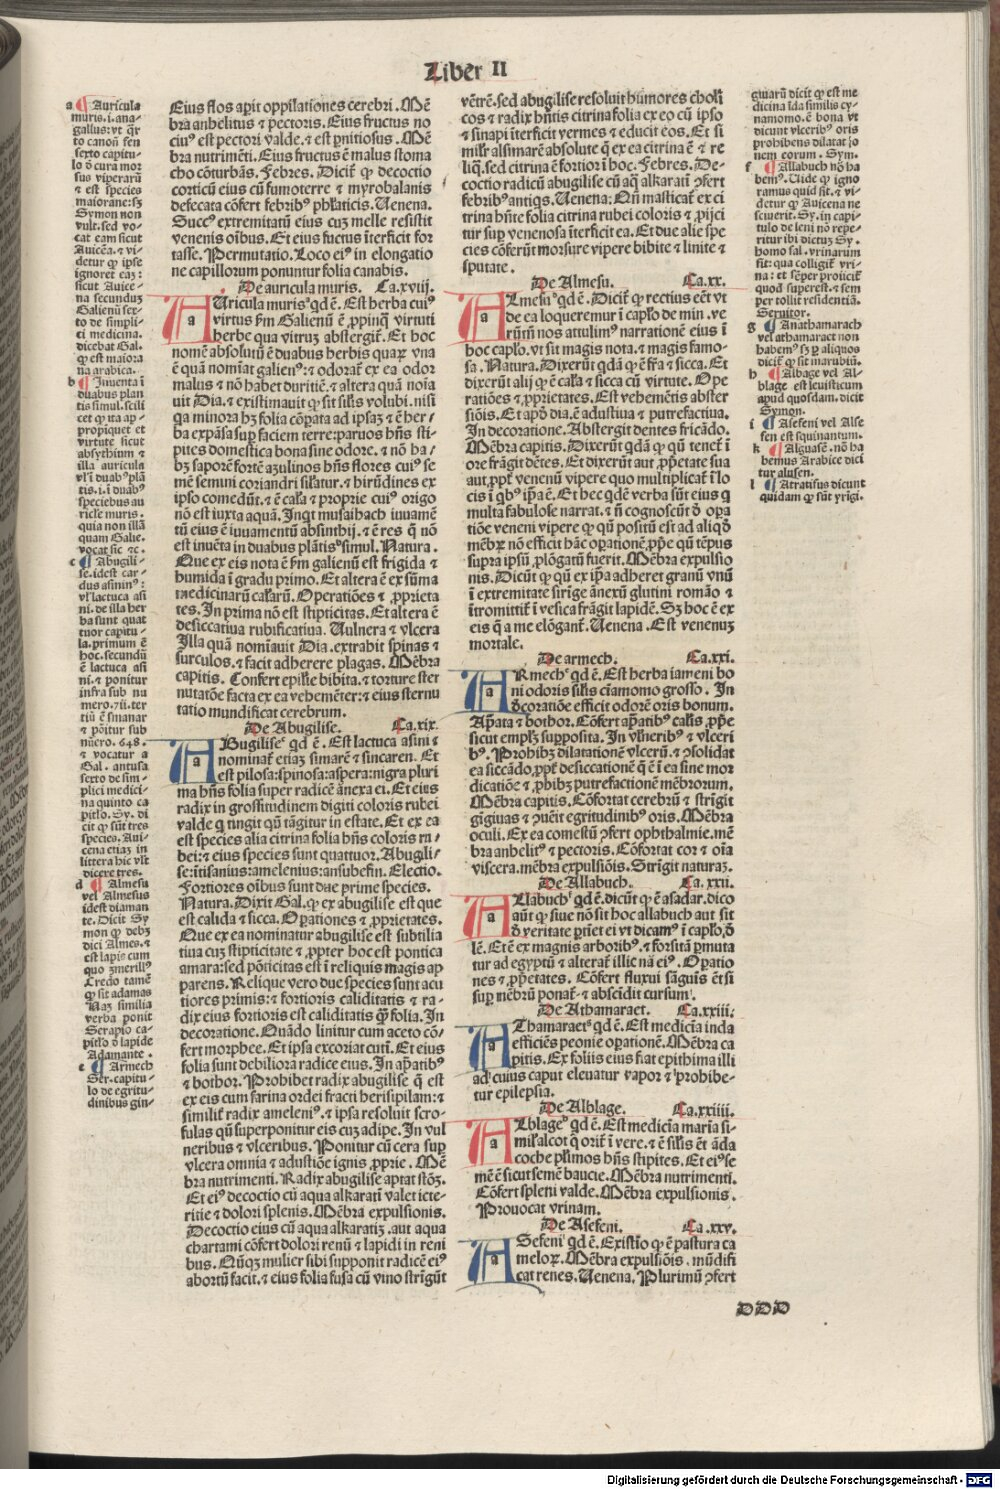 Liber II
a ¶ Auricula
muris.i.ana-
gallus:vt qr̄
to canoñ sen
sexto capitu-
lo ð cura mor
sus viperarū
⁊ est species
maioranę:sꝫ
Symon non
vult.sed vo-
cat eam sicut
Auicēa.⁊ vi-
detur ꝙ ipse
ignoret eaꝫ:
sicut Auice-
na secundus
Galienū sex-
to de simpli-
ci medicina.
dicebat Gal.
ꝙ est maiora
na arabica.
b ¶ Inuenta ī
duabus plan
tis simul.scili
cet ꝙ ita ap-
propiquet et
virtute sicut
absythium ⁊
illa auricula
vl'ī duabꝰ plā
tis.i.ī duabꝰ
speciebus au
ricule muris.
quia non illā
quam Galie.
vocat sic ⁊c.
c ¶ Abugili-
se.idest car-
dus asininꝰ:
vl'lactuca asi
ni.de illa her
ba sunt quat
tuor capitu-
la.primum ē
hoc.secundū
ē lactuca asi
ni.⁊ ponitur
infra sub nu
mero.711.ter
tiū ē smanar
⁊ pōitur sub
nūero.648.
⁊ vocatur a
Gal. antusa
sexto de sim-
plici medici-
na quinto ca
pitło. Sy. di
cit ꝙ sūt tres
species. Aui-
cena etiaꝫ in
littera hic vl't
dicere tres.
d ¶ Almesu
vel Almesus
idest diaman
te. Dicit Sy
mon ꝙ debꝫ
dici Almes.⁊
est lapis cum
quo ʒmerillꝰ
Credo tamē
ꝙ sit adamas
Naꝫ similia
verba ponit
Serapio ca-
pitło ð lapide
Adamante.
e ¶ Armech
Ser.capitu-
lo de egritu-
dinibus gin-
Eius flos apit oppilationes cerebri. Mē
bra anhelitus ⁊ pectoris. Eius fructus no
ciuꝰ est pectori valde.⁊ est pnitiosus. Mē
bra nutrimēti. Eius fructus ē malus stoma
cho cōturbās. Febres. Dicit̃ ꝙ decoctio
corticū eius cū fumoterre ⁊ myrobalanis
defecata cōfert febribꝰ phłaticis. Uenena.
Succꝰ extremitatū eius cuꝫ melle resistit
venenis oibus. Et eius fuctus īterficit for
tasse. Permutatio. Loco eiꝰ in elongatio
ne capillorum ponuntur folia canabis.
De auricula muris. Ca.xviij.
AUricula murisᵃqd ē. Est herba cuiꝰ
virtus s̃m Galienū ē ꝓpinq̃ virtuti
herbe qua vitruꝫ abstergit̃. Et hoc
nomē absolutū ē duabus herbis quaꝝ vna
ē quā nomīat galienꝰ:⁊ odorat̃ ex ea odor
malus ⁊ nō habet duritiē.⁊ altera quā noīa
uit Dia.⁊ existimauit ꝙ sit siłis volubi.nisi
qa minora hꝫ folia cōpata ad ipsaꝫ ⁊ ē her/
ba expāsa sup faciem terre:paruos hñs sti-
pites domestica bona sine odore. ⁊ nō ha/
bꝫ saporē fortē azulinos hñs flores cuiꝰ se
mē semini coriandri siłatur.⁊ hirūdines ex
ipso comedūt.⁊ ē cała ⁊ proprie cuiꝰ origo
nō est iuxta aquā. Inqt musaibach iuuamē
tū eius ē iuuamentū absinthij.⁊ ē res q̄ nō
est inuēta in duabus plātisᵇsimul. Natura.
Que ex eis nota ē s̃m galienū est frigida ⁊
humida ī gradu primo. Et altera ē ex sūma
medicinarū całarū. Operatiōes ⁊ ꝓprieta
tes. In prima nō est stipticitas. Et altera ē
desiccatiua rubificatiua. Uulnera ⁊ vlcera
Illa quā nomīauit Dia.extrahit spinas ⁊
surculos.⁊ facit adherere plagas. Mēbra
capitis. Confert epiłie bibita.⁊ torture ster
nutatōe facta ex ea vehemēter:⁊ eius sternu
tatio mundificat cerebrum.
De Abugilise. Ca.xix.
ABugiliseᶜ qd ē. Est lactuca asini ⁊
nominat̃ etiaꝫ simarē ⁊ sincaren. Et
est pilosa:spinosa:aspera:nigra pluri
ma hñs folia super radicē ānexa ei. Et eius
radix in grossitudinem digiti coloris rubei
valde q̄ tingit qū tāgitur in estate. Et ex ea
est species alia citrina folia hñs coloris ru/
bei:⁊ eius species sunt quattuor. Abugili/
se:ītisanius:amelenius:ansubefin. Electio.
Fortiores oibus sunt due prime species.
Natura. Dixit Gal.ꝙ ex abugilise est que
est calida ⁊ sicca. Oꝑationes ⁊ ꝓprietates.
Que ex ea nominatur abugilise est subtilia
tiua cuꝫ stipticitate ⁊ ꝓpter hoc est pontica
amara:sed pōticitas est ī reliquis magis ap
parens. Relique vero due species sunt acu
tiores primis:⁊ fortioris caliditatis ⁊ ra-
dix eius fortioris est caliditatis q̄̄ folia. In
decoratione. Quādo linitur cum aceto cō/
fert morphee. Et ipsa excoriat cutī. Et eius
folia sunt debiliora radice eius. In apatibꝰ
⁊ bothor. Prohibet radix abugilise q̄ est
ex eis cum farina ordei fracti herisipilam:⁊
similit̃ radix ameleniꝰ.⁊ ipsa resoluit scro/
fulas qū superponitur eis cuꝫ adipe. In vul
neribus ⁊ vlceribus. Ponitur cū cera sup
vlcera omnia ⁊ adustiōe ignis ꝓprie. Mē
bra nutrimenti. Radix abugilise aptat stōꝫ.
Et eiꝰ decoctio cū aqua alkaratū valet icte-
ritie ⁊ dolori splenis. Mēbra expulsionis.
Decoctio eius cū aqua alkaratiꝫ.aut aqua
chartami cōfert dolori renū ⁊ lapidi in reni
bus. Nūqꝫ mulier sibi supponit radicē eiꝰ
abortū facit.⁊ eius folia fusa cū vino strīgūt
vētrē.sed abugilise resoluit humores choli
cos ⁊ radix hñtis citrina folia ex eo cū ipso
⁊ sinapi īterficit vermes ⁊ educit eos. Et si
milr̃ alsimarē absolute q̄ ex ea citrina ē ⁊ re
liq̄.sed citrina ē fortior ī hoc. Febres. De-
coctio radicū abugilise cū aq̄ alkaratī ꝯfert
febribꝰantiqs. Uenena: Qñ masticat̃ ex ci
trina hñte folia citrina rubei coloris ⁊ ꝓijci
tur sup venenosa īterficit ea. Et due alie spe
cies cōferūt morsure vipere bibite ⁊ linite ⁊
sputate.
De Almesu. Ca.xx.
ALmesuᵈ qd ē. Dicit̃ ꝙ rectius eēt vt
de ea loqueremur ī capło de min.ve
rūm nos attulimꝰ narrationē eius ī
hoc capło.vt sit magis nota.⁊ magis famo-
sa. Natura. Dixerūt qdā ꝙ ē fr̃a ⁊ sicca. Et
dixerūt alij ꝙ ē cała ⁊ sicca cū virtute. Ope
ratiōes ⁊ ꝓprietates. Est vehemētis abster
siōis. Et apđ dia.ē adustiua ⁊ putrefactiua.
In decoratione. Abstergit dentes fricādo.
Mēbra capitis. Dixerūt qdā ꝙ qū tenet̃ ī
ore frāgit dētes. Et dixerūt aut ꝓpetate sua
aut.ꝓpt̃ venenū vipere quo multiplicat̃ ī lo
cis ī qbꝰ ip̃a ē. Et hec qdē verba sūt eius q
multa fabulose narrat.⁊ ñ cognoscūt ð oꝑa
tiōe veneni vipere ꝙ qū positū est ad aliqđ
mēbꝝ nō efficit hāc oꝑationē.ꝓp̃e qū tēpus
supra ipsū ꝓlōgatū fuerit. Mēbra expulsio
nis. Dicūt ꝙ qū ex ip̃a adheret granū vnū
ī extremitate sirīge ānexū glutini romāo ⁊
ītromittit̃ ī vesica frāgit lapidē. Sꝫ hoc ē ex
eis q̄ a me elōgant̃. Uenena. Est venenuꝫ
mortale.
De armech. Ca.xxi.
ARmechᵉ qd ē. Est herba iameni bo
ni odoris siłis cīamomo grosso. In
ðcoratiōe efficit odorē oris bonum.
Apata ⁊ bothor. Cōfert apatibꝰ całis ꝓp̃e
sicut emplꝫ supposita. In vłneribꝰ ⁊ vlceri
bꝰ. Prohibꝫ dilatationē vlcerū.⁊ ꝯsolidat
ea siccādo.ꝓpt̃ desiccationē q̄ ē ī ea sine mor
dicatiōe ⁊ ꝓhibꝫ putrefactionē mēbrorum.
Mēbra capitis. Cōfortat cerebrū ⁊ strīgit
gīgiuas ⁊ ꝯuēit egritudinibꝰ oris. Mēbra
oculi. Ex ea comestū ꝯfert ophthalmie.mē
bra anhelitꝰ ⁊ pectoris. Cōfortat cor ⁊ oīa
viscera.mēbra expulsiōis. Strīgit naturaꝫ.
De Allabuch. Ca.xxii.
ALlabuchᶠ qd ē.dicūt ꝙ ē asadar.dico
aūt ꝙ siue nō sit hoc allabuch aut sit
ð veritate pt̃iet ei vt dicamꝰ ī capło.ð
lē. Etē ex magnis arboribꝰ.⁊ forsitā pmuta
tur ad egyptū ⁊ alterat̃ illic nā eiꝰ. Oꝑatio
nes ⁊ ꝓpetates. Cōfert fluxui sāguīs ētsi
sup mēbrū ponat̃.⁊ abscidit cursum.
De Athamaraet. Ca.xxiii.
AThamaraetᵍ qd ē. Est medicīa inda
efficiēs peonie oꝑationē. Mēbra ca
pitis. Ex foliis eius fiat epithima illi
ad cuius caput eleuatur vapor ⁊ prohibe-
tur epilepsia.
De Alblage. Ca.xxiiii.
ALblageʰ qd ē. Est medicīa maria si-
mił alcot q̄ orit̃ ī vere.⁊ ē siłis ēt āda
coche płimos hñs stipites. Et eiꝰ se
mē ē sicut semē baucie. Mēbra nutrimenti.
Cōfert spleni valde. Mēbra expulsionis.
Prouocat vrinam.
De Asefeni. Ca.xxv.
ASefeniⁱ qd ē. Existīo ꝙ ē pastura ca
meloꝝ. Mēbra expulsiōis.mūdifi
cat renes. Uenena. Plurimū ꝯfert
giuarū dicit ꝙ est me
dicina īda similis cy-
namomo.ē bona vt
dicunt vlceribꝰ oris
prohibens dilatatio
nem eorum. Sym.
f ¶ Allabuch nō ha
bemꝰ. Unde ꝙ igno
ramus quid sit.⁊ vi-
detur ꝙ Auicena ne
sciuerit. Sy. in capi-
tulo de leni nō repe-
ritur ibi dictuꝫ Sy.
homo sal.vrinarum
fit: qua colligit̃ vri-
na: et sēper proiicit̃
quod superest.⁊ sem
per tollit residentiā.
Seruitor.
g ¶ Anathamarach
vel athamaraet non
habemꝰ sꝫ p aliquos
dicit̃ ꝙ sit marubiū.
h ¶ Albage vel Al-
blage est leuisticum
apud quosdam.dicit
Symon.
i ¶ Asefeni vel Alse
fen est squinantum.
k ¶ Alguasē.nō ha
bemus Arabice dici
tur alusen.
l ¶ Atratisus dicunt
quidam ꝙ sūt yrigi.
DDD
Digitalisierung gefördert durch die Deutsche Forschungsgemeinschaft - DFG